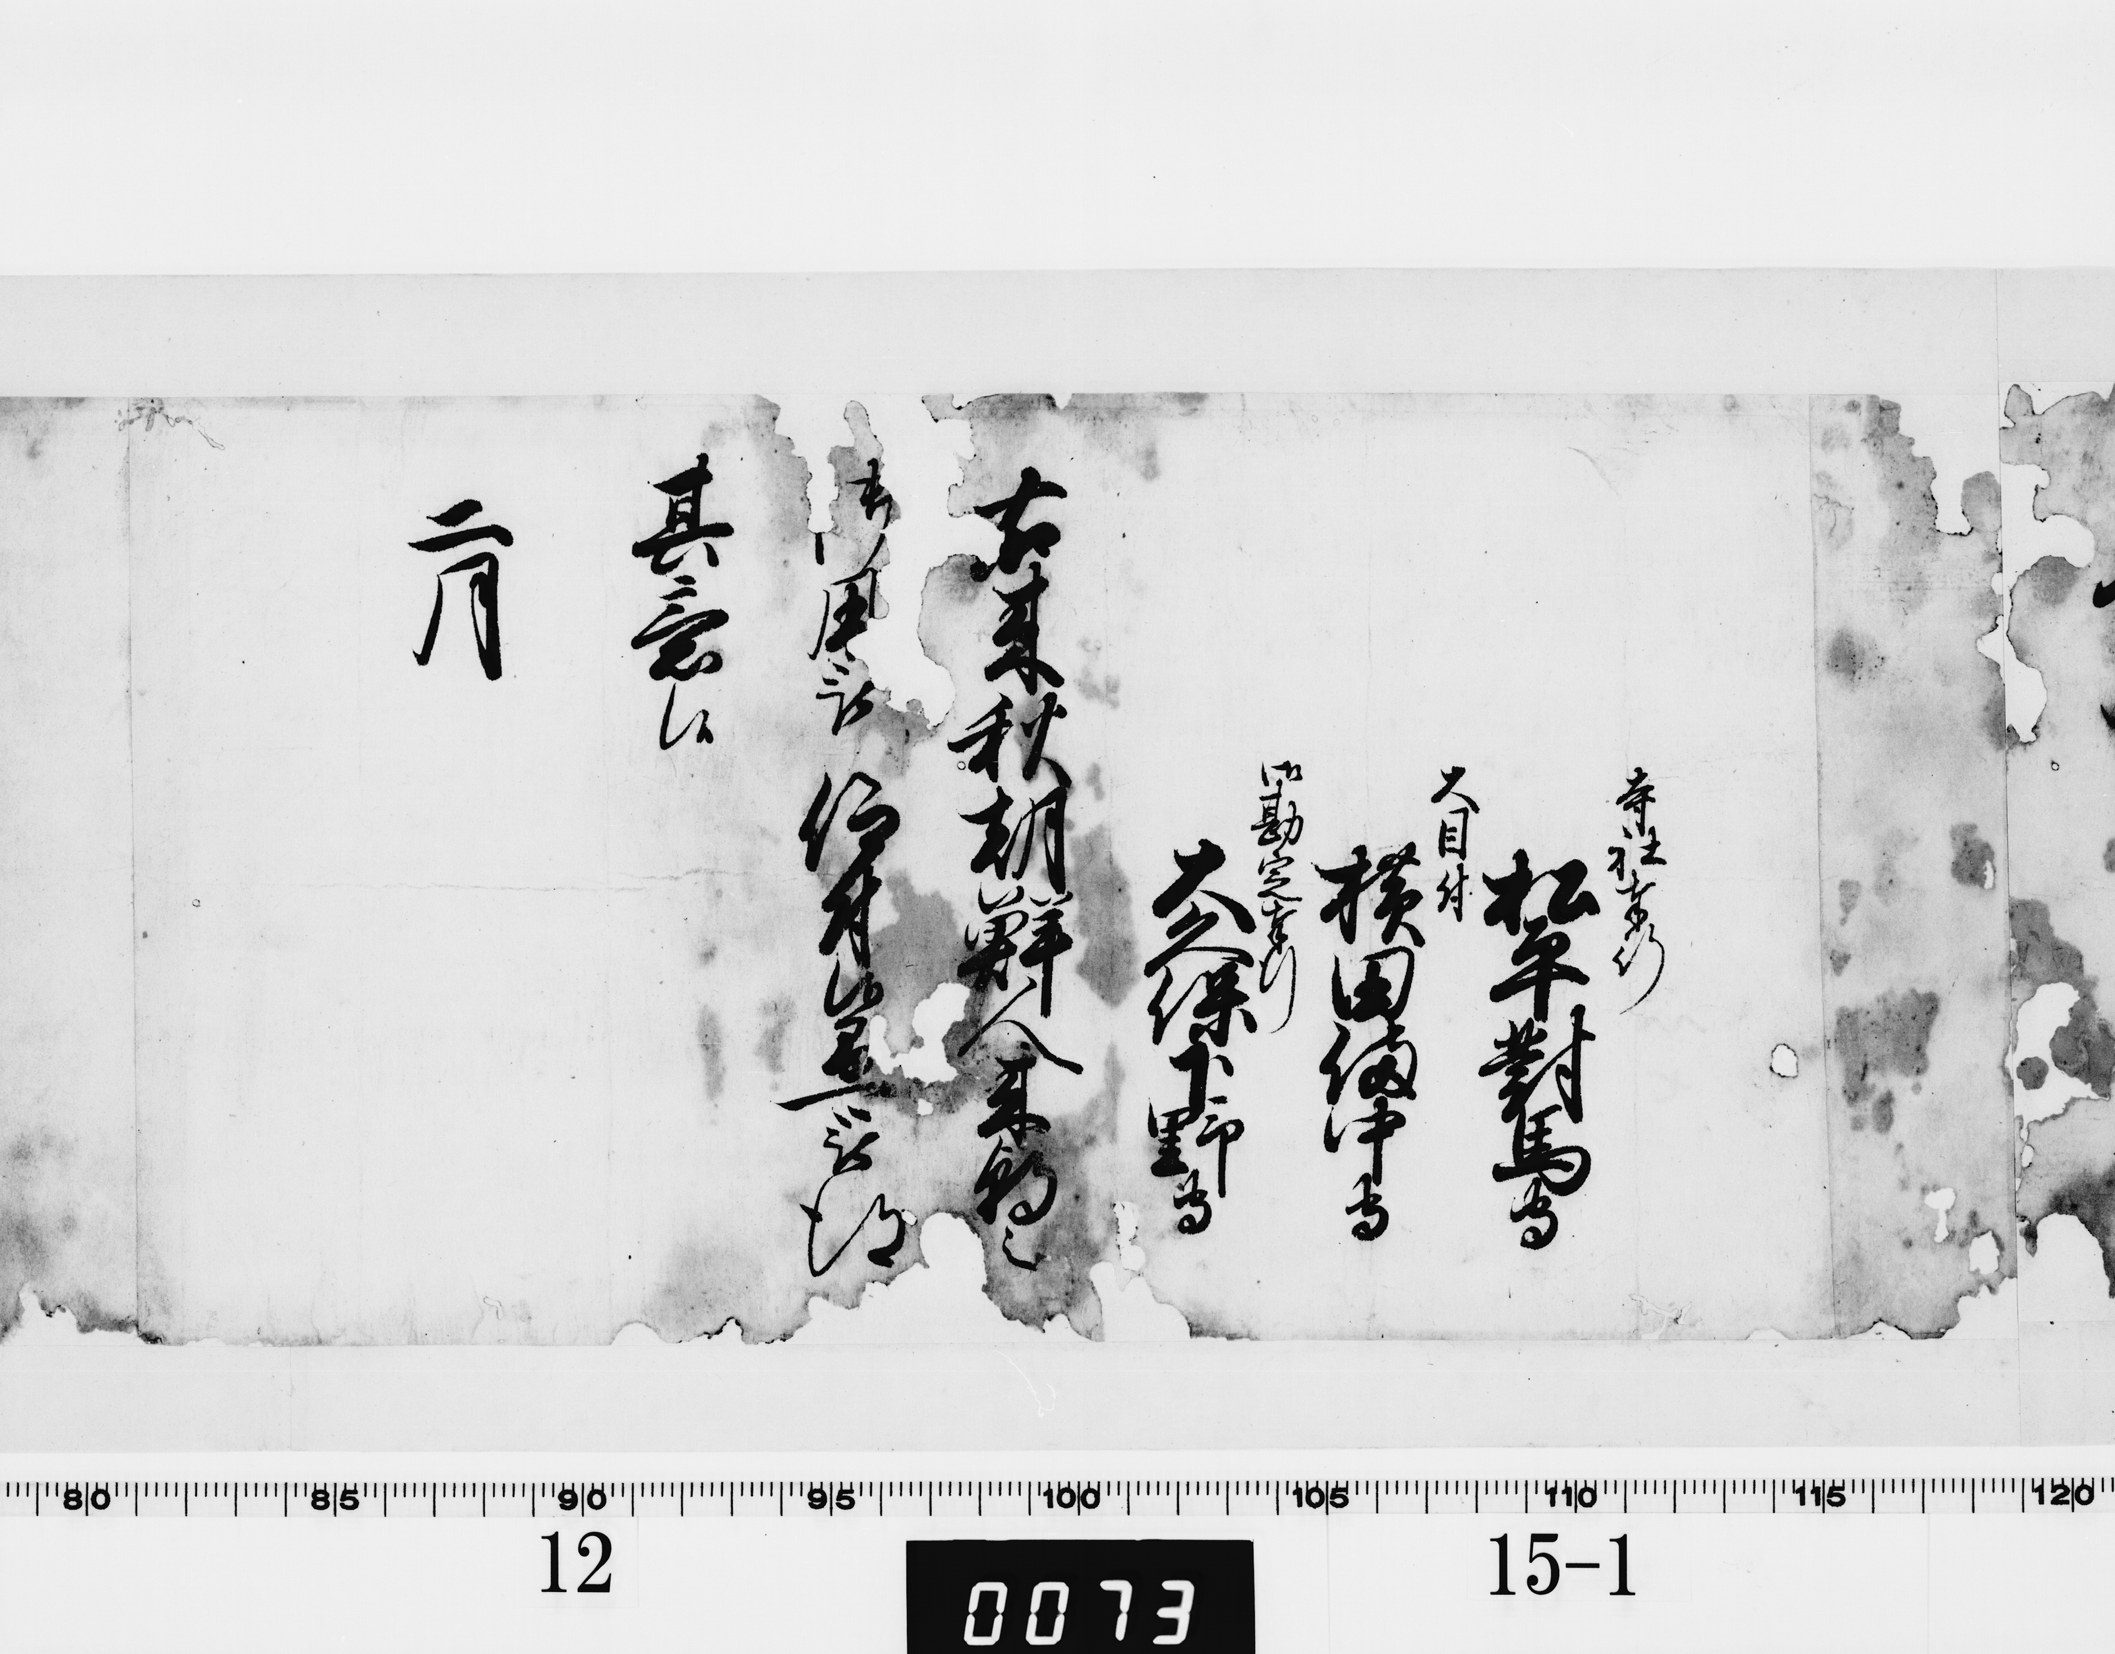 寺社奉行
松平對馬守
大目付
横田備中守
御勘定奉行
大久保下野守
右来秋朝鮮人来聘之
御用被 仰付候並被得
其意候
二月
80 85 90 95 100 105 110 115 120
12
0073
15-1